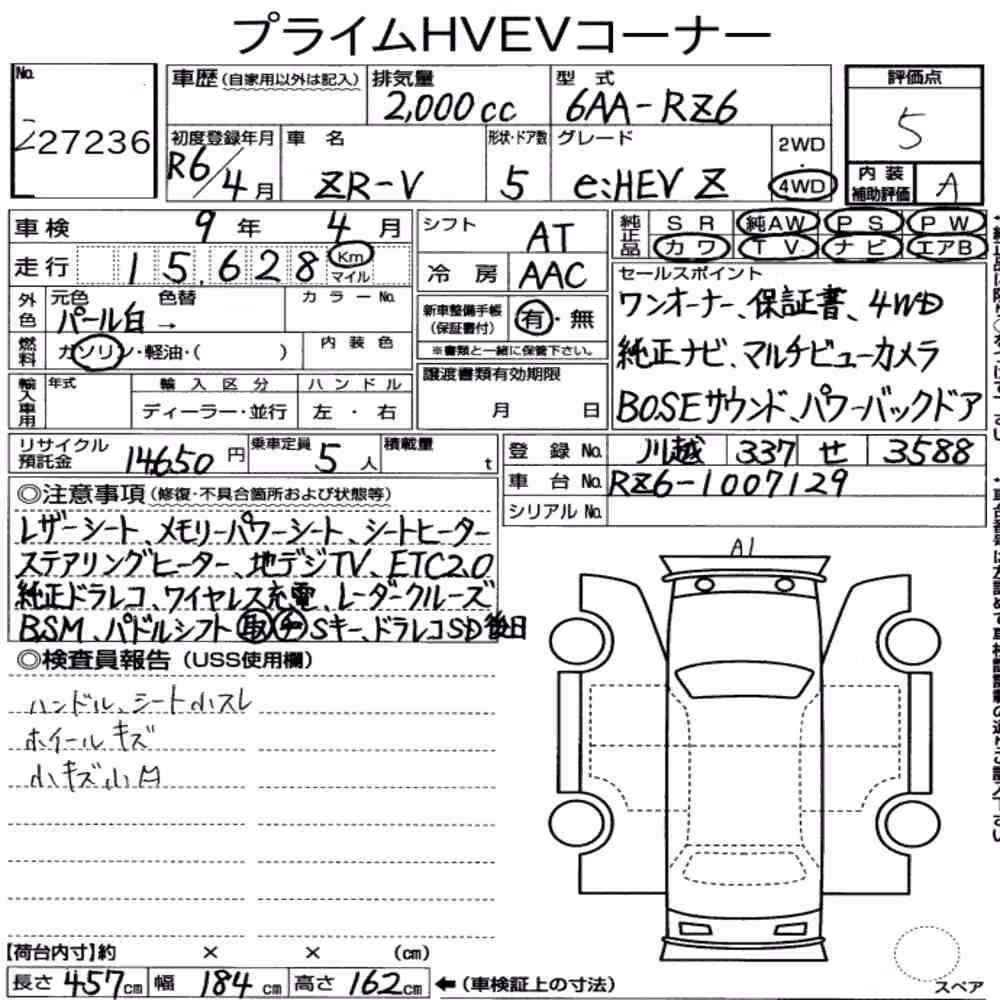 プライムHVEVコーナー
No. 227236
車歴(自家用以外は記入) 排気量 2,000cc 型式 6AA-RZ6
評価点 5
初度登録年月 R6/4月 車名 ZR-V 形状・ドア数 5 グレード e:HEV Z 2WD・4WD
内装補助評価 A
車検 9年 4月 シフト AT
純正品 SR 純AW PS PW
カワ TV ナビ エアB
走行 15,628 Km マイル 冷房 AAC
外色 元色 パール白 → 色替 カラーNo.
新車整備手帳(保証書付) 有・無
※書類と一緒に保管下さい。
燃料 ガソリン・軽油・( ) 内装色
セールスポイント
ワンオーナー、保証書、4WD
純正ナビ、マルチビューカメラ
BOSEサウンド、パワーバックドア
輸入車用 年式 輸入区分 ハンドル
ディーラー・並行 左・右
譲渡書類有効期限
月 日
リサイクル預託金 14650円 乗車定員 5人 積載量 t
登録No. 川越 337 せ 3588
車台No. RZ6-1007129
シリアルNo.
◎注意事項(修復・不具合箇所および状態等)
レザーシート、メモリーパワーシート、シートヒーター
ステアリングヒーター、地デジTV、ETC2.0
純正ドラレコ、ワイヤレス充電、レーダークルーズ
BSM、パドルシフト 取 Sキー、ドラレコSD後日
◎検査員報告(USS使用欄)
ハンドル、シート小スレ
ホイールキズ
小キズ小凹
A1
【荷台内寸】約 × × (cm)
長さ 457cm 幅 184cm 高さ 162cm ←(車検証上の寸法)
スペア